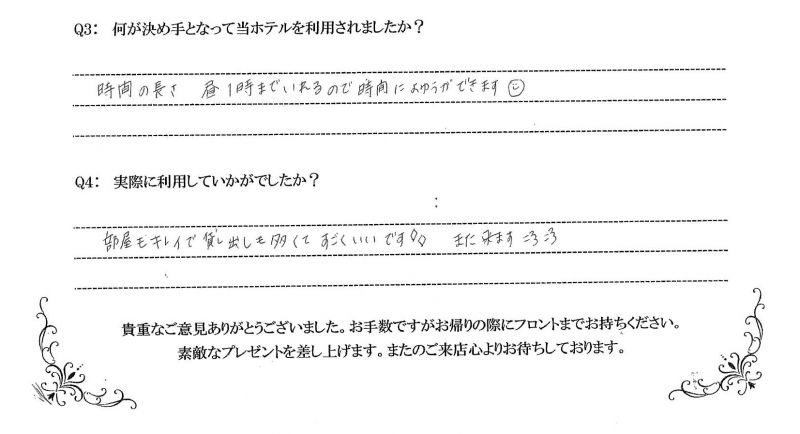 Q3: 何が決め手となって当ホテルを利用されましたか？
時間の長さ 昼1時までいれるので時間によゆうができます
Q4: 実際に利用していかがでしたか？
部屋もキレイで貸し出しも多くてすごくいいです◇◇ また来ます
貴重なご意見ありがとうございました。お手数ですがお帰りの際にフロントまでお持ちください。
素敵なプレゼントを差し上げます。またのご来店心よりお待ちしております。